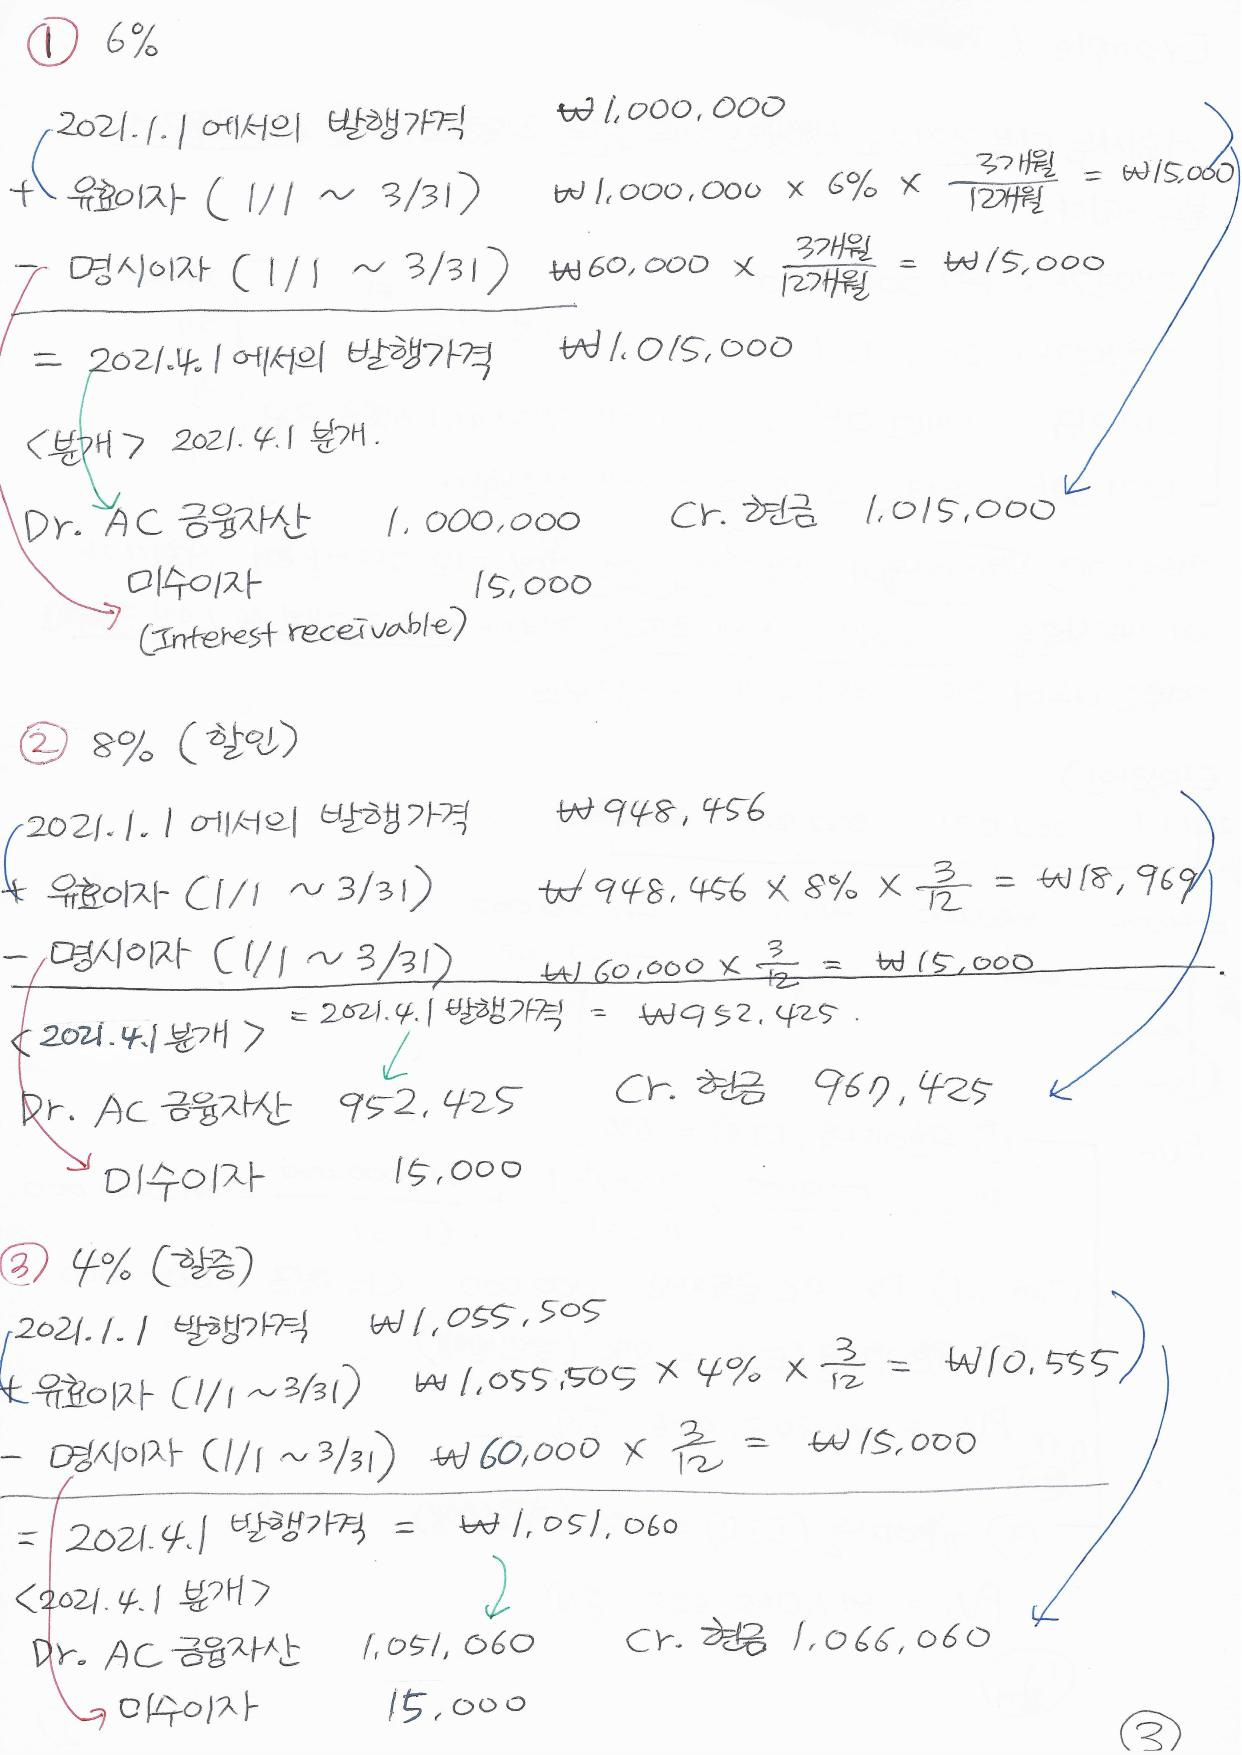 ① 6%
2021.1.1 에서의 발행가격 ₩1,000,000
+ 유효이자 (1/1 ~ 3/31) ₩1,000,000 × 6% × 3개월/12개월 = ₩15,000
- 명시이자 (1/1 ~ 3/31) ₩60,000 × 3개월/12개월 = ₩15,000
= 2021.4.1 에서의 발행가격 ₩1,015,000
<분개> 2021.4.1 분개.
Dr. AC 금융자산 1,000,000 Cr. 현금 1,015,000
미수이자 15,000
(Interest receivable)
② 8% (할인)
2021.1.1 에서의 발행가격 ₩948,456
+ 유효이자 (1/1 ~ 3/31) ₩948,456 × 8% × 3/12 = ₩18,969
- 명시이자 (1/1 ~ 3/31) ₩60,000 × 3/12 = ₩15,000
= 2021.4.1 발행가격 = ₩952,425.
<2021.4.1 분개>
Dr. AC 금융자산 952,425 Cr. 현금 967,425
미수이자 15,000
③ 4% (할증)
2021.1.1 발행가격 ₩1,055,505
+ 유효이자 (1/1 ~ 3/31) ₩1,055,505 × 4% × 3/12 = ₩10,555
- 명시이자 (1/1 ~ 3/31) ₩60,000 × 3/12 = ₩15,000
= 2021.4.1 발행가격 = ₩1,051,060
<2021.4.1 분개>
Dr. AC 금융자산 1,051,060 Cr. 현금 1,066,060
미수이자 15,000
③